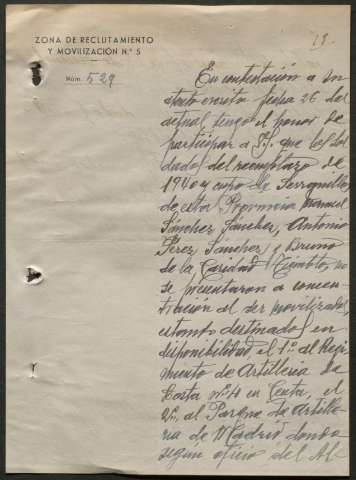 ZONA DE RECLUTAMIENTO
Y MOVILIZACIÓN N.º 5
Núm. 529
En contestación a su
atento escrito fecha 26 del
actual tengo el honor de
participar a S.S. que los sol
dados del reemplazo de
1940 y cupo de
de esta Provincia Manuel
Sánchez Sánchez, Antonio
Pérez Sánchez, y Bruno
de la Caridad no
se presentaron a concen
tración al ser movilizados,
estando destinados en
disponibilidad, el 1º al Regi
miento de Artilleria de
Costa nº 4 en Ceuta, el
2º, al Parque de Artille
ria de Madrid, donde
según oficio del